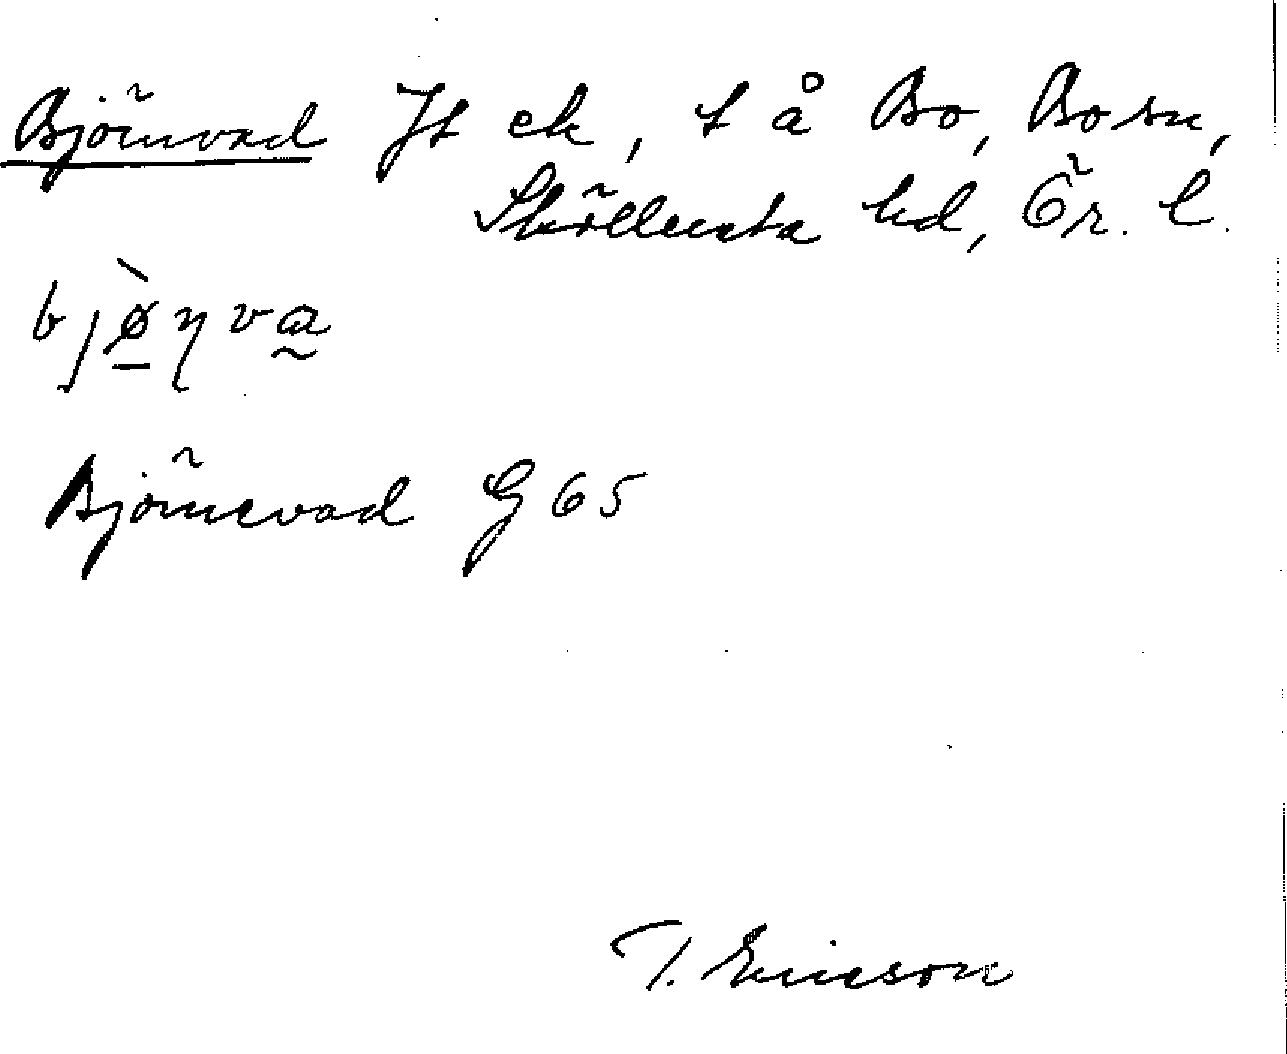 Björnvad Jt ek, t å Bo, Bo sn,
Sköllersta hd, Ör. l.
bjø̀ηva
Björnevad G 65
T. Ericson